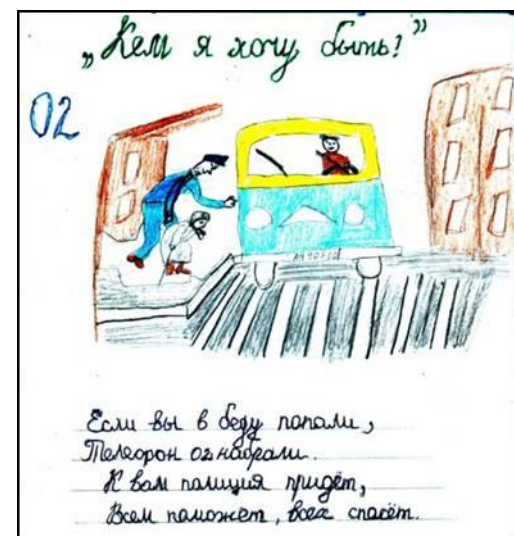 „Кем я хочу быть?”
02
Если вы в беду попали,
Телефон 02 набрали.
К вам полиция придёт,
Всем поможет, всех спасёт.